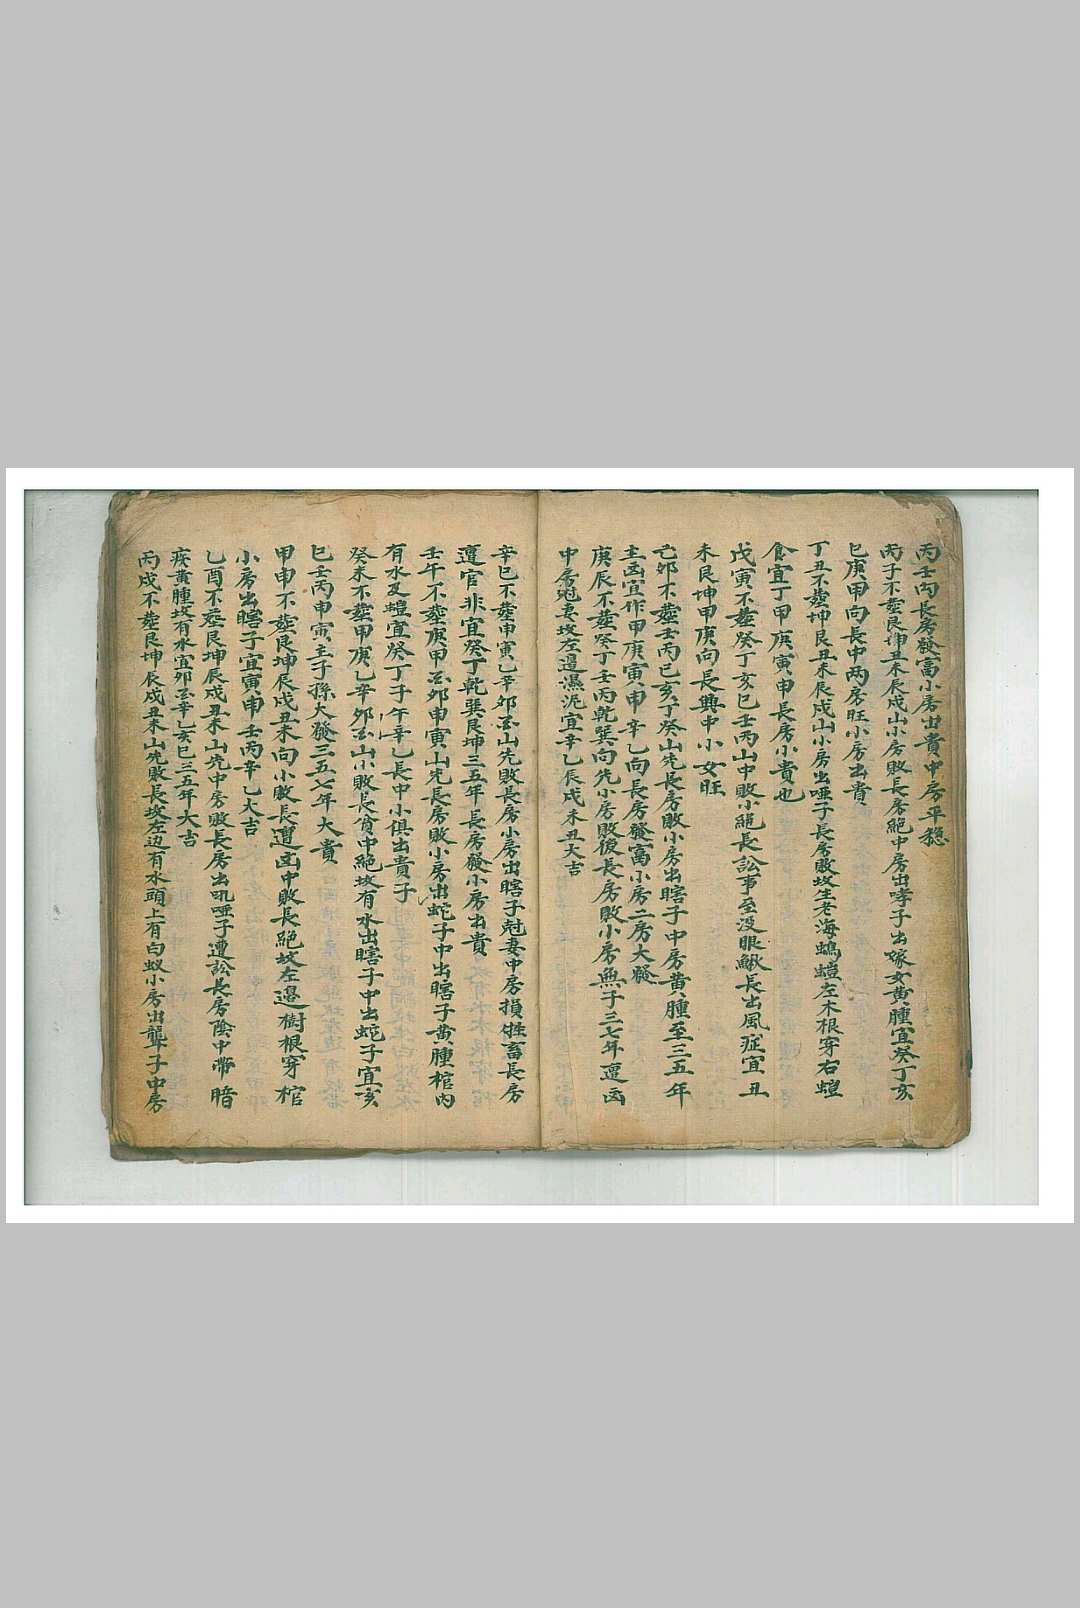 丙壬向長房發富小房出貴中房平穩
丙子不葬艮坤丑未辰戌山小房敗長房絕中房出哮子出嫁女黃腫宜癸丁亥
巳庚甲向長中兩房旺小房出貴
丁丑不葬坤艮丑未辰戌山小房出啞子長房敗坟生老海螐螘左木根穿右螘
食宜丁甲庚寅申長房小貴也
戊寅不葬癸丁亥巳壬丙山中敗小絕長訟事至沒眼鰍長出風症宜丑
未艮坤甲庚向長興中小女旺
己卯不葬壬丙巳亥丁癸山先長房敗小房出瞎子中房黃腫至三五年
主凶宜作甲庚寅申辛乙向長房發富小房二房大發
庚辰不葬癸丁壬丙乾巽向先小房敗後長房敗小房無子三七年遭凶
中房尅妻坟左邊濕泥宜辛乙辰戌未丑大吉
辛巳不葬申寅乙辛卯酉山先敗長房小房出瞎子尅妻中房損牲畜長房
遭官非宜癸丁乾巽艮坤三五年長房發小房出貴
壬午不葬庚甲酉卯申寅山先長房敗小房出蛇子中出瞎子黃腫棺內
有水及螘宜癸丁子午辛乙長中小俱出貴子
癸未不葬甲庚乙辛卯酉山小敗長貧中絕坟有水出瞎子中出蛇子宜亥
巳壬丙申寅主子孫大發三五七年大貴
甲申不葬艮坤辰戌丑未向小敗長遭凶中敗長絕坟左邊樹根穿棺
小房出瞎子宜寅申壬丙辛乙大吉
乙酉不葬艮坤辰戌丑未山先中房敗長房出吼啞子遭訟長房陰中帶暗
疾黃腫坟有水宜卯酉辛乙亥巳三五年大吉
丙戌不葬艮坤辰戌丑未山先敗長坟左边有水頭上有白蚁小房出聾子中房